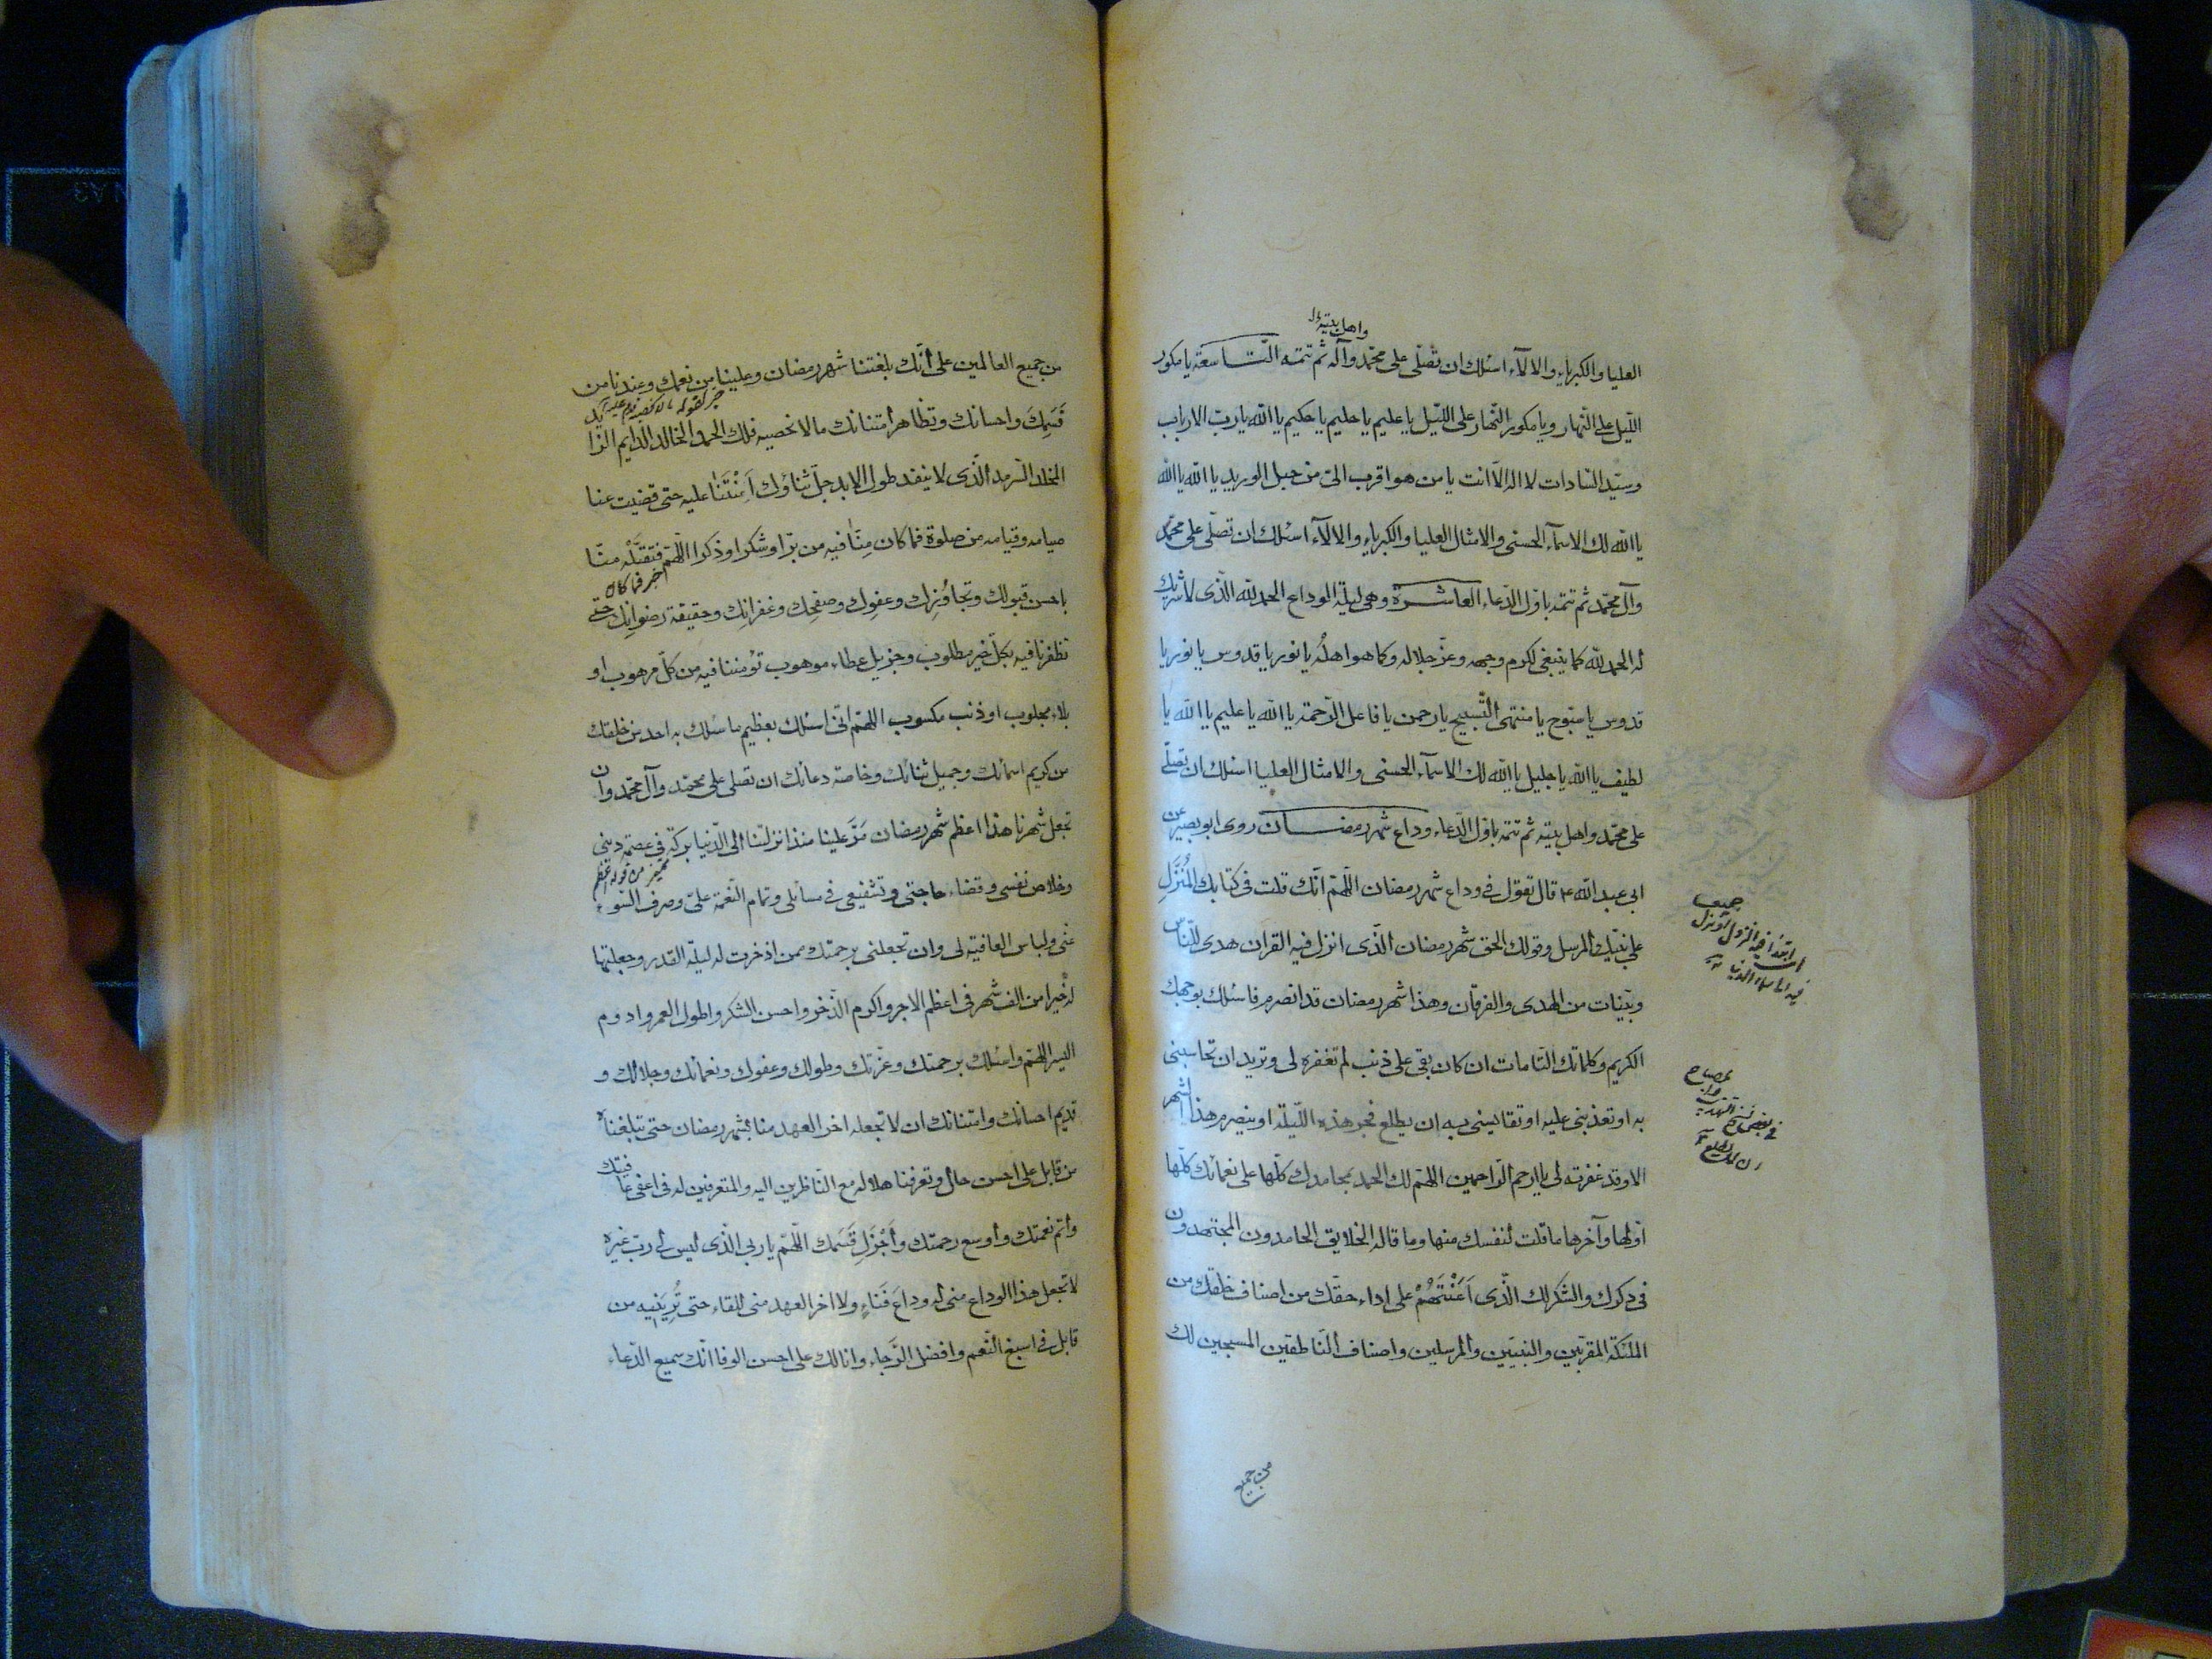 واهل بيته
العليا والكبرياء والالآء اسئلك ان تصلّى على محمّد وآله ثم تتمه التاسعة يا مكور
اللّيل على النّهار ويا مكور النّهار على اللّيل يا عليم يا حليم يا حكيم يا الله يا ربّ الارباب
وسيّد السّادات لا اله الّا انت يا من هو اقرب الىّ من حبل الوريد يا الله يا الله
يا الله لك الاسمآء الحسنى والامثال العليا والكبرياء والالآء اسئلك ان تصلّى على محمّد
وآل محمّد ثم تتمه باوّل الدّعاء العاشرة وهى ليلة الوداع الحمد لله الّذى لا شريك
له الحمد لله كما ينبغى لكرم وجهه وعزّ جلاله وكما هو اهلُه يا نور يا قدوس يا نور يا
قدوس يا سبّوح يا منتهى التّسبيح يا رحمن يا فاعل الرّحمة يا الله يا عليم يا الله يا
لطيف يا الله يا جليل يا الله لك الاسمآء الحسنى والامثال العليا اسئلك ان تصلّى
على محمّد واهل بيته ثم تتمه باوّل الدّعاء وداع شهر رمضان روى ابو بصير عن
ابى عبد الله ع قال تقول فى وداع شهر رمضان اللّهمّ انّك قلت فى كتابك المُنْزَلِ
على نبيّك المرسل وقولك الحق شهر رمضان الّذى انزل فيه القران هدى للنّاس
وبيّنات من الهدى والفرقان وهذا شهر رمضان قد انصرم فاسئلك بوجهك
الكريم وكلماتك التّامات ان كان بقى على ذنب لم تغفره لى وتريد ان تحاسبنى
به او تعذبنى عليه او تقايسنى به ان يطلع فجر هذه اللّيلة او ينصرم هذا الشهر
الا وقد غفرته لى يا ارحم الرّاحمين اللهمّ لك الحمد بمحامدك كلّها على نعمائك كلّها
اوّلها وآخرها ما قلت لنفسك منها وما قاله الخلايق الحامدون المجتهدون
فى ذكرك والشّكر لك الّذى اَعَنْتَهُمْ على اداء حقّك من اصناف خلقك من
الملئكة المقرّبين والنبيّين والمرسلين واصناف النّاطقين المسبحين لك
من جميع
من جميع العالمين على أنّك بلغتنا شهر رمضان وعلينا من نعمك وعندنا من
قَسَمِكَ واحسانك وتظاهر امتنانك ما لا نحصيه فلك الحمد الخالد الدّايم الرّا
المخلد السّرمد الّذى لا ينفد طول الابد جلّ ثناؤك اَعَنْتَنَا عليه حتى قضيت عنا
صيامه وقيامه من صلوة فما كان مِنّا فيه من برّ او شكر او ذكر اللّهمّ فتقبَّلْه منّا
خبر فما كان
باحسن قبولك وتجاوُزِك وعفوِك وصفحِك وغفرانِك وحقيقة رضوانِك حتّى
تظفرنا فيه بكلّ خير مطلوب وجزيل عطاء موهوب تؤمننا فيه من كلّ مرهوب او
بلاء مجلوب او ذنب مكسوب اللهمّ انّى اسئلك بعظيم ما سئلك به احد من خلقك
من كريم اسمائك وجميل ثنائك وخاصة دعائك ان تصلى على محمّد وآل محمّد وان
تجعل شهرنا هذا اعظم شهر رمضان مَرَّ علينا منذ انزلتنا الى الدّنيا بركة فى عصمة دينى
وخلاص نفسى وقضاء حاجتى وتشفيعى فى مسائلى وتمام النّعمة علىّ وصرف السّوء
عنّى ولباس العافية لى وان تجعلنى برحمتك ممن اذخرت له ليلة القدر وجعلتها
له خيرا من الف شهر فى اعظم الاجر واكرم الذّخر واحسن الشّكر واطول العمر وادوم
اليسر اللهمّ واسئلك برحمتك وعزّتك وطولك وعفوك ونعمائك وجلالك و
قديم احسانك وامتنانك ان لا تجعله اخر العهد منا بشهر رمضان حتى تبلغناه
من قابل على احسن حال وتعرفنا هلاله مع النّاظرين اليه والمتعرفين له فى اعفى عافيتك
وأتم نعمتك وأوسع رحمتك وأَجْزَلِ قَسَمك اللّهمّ يا ربى الّذى ليس لى ربّ غيره
لا تجعل هذا الوداع منى له وداعَ فَنَاءٍ ولا اخر العهد منى للقاء حتى تُرِيَنِيه من
قابل فى اسبغ النّعم وافضل الرّجاء وانا لك على احسن الوفا انّك سميع الدّعاء